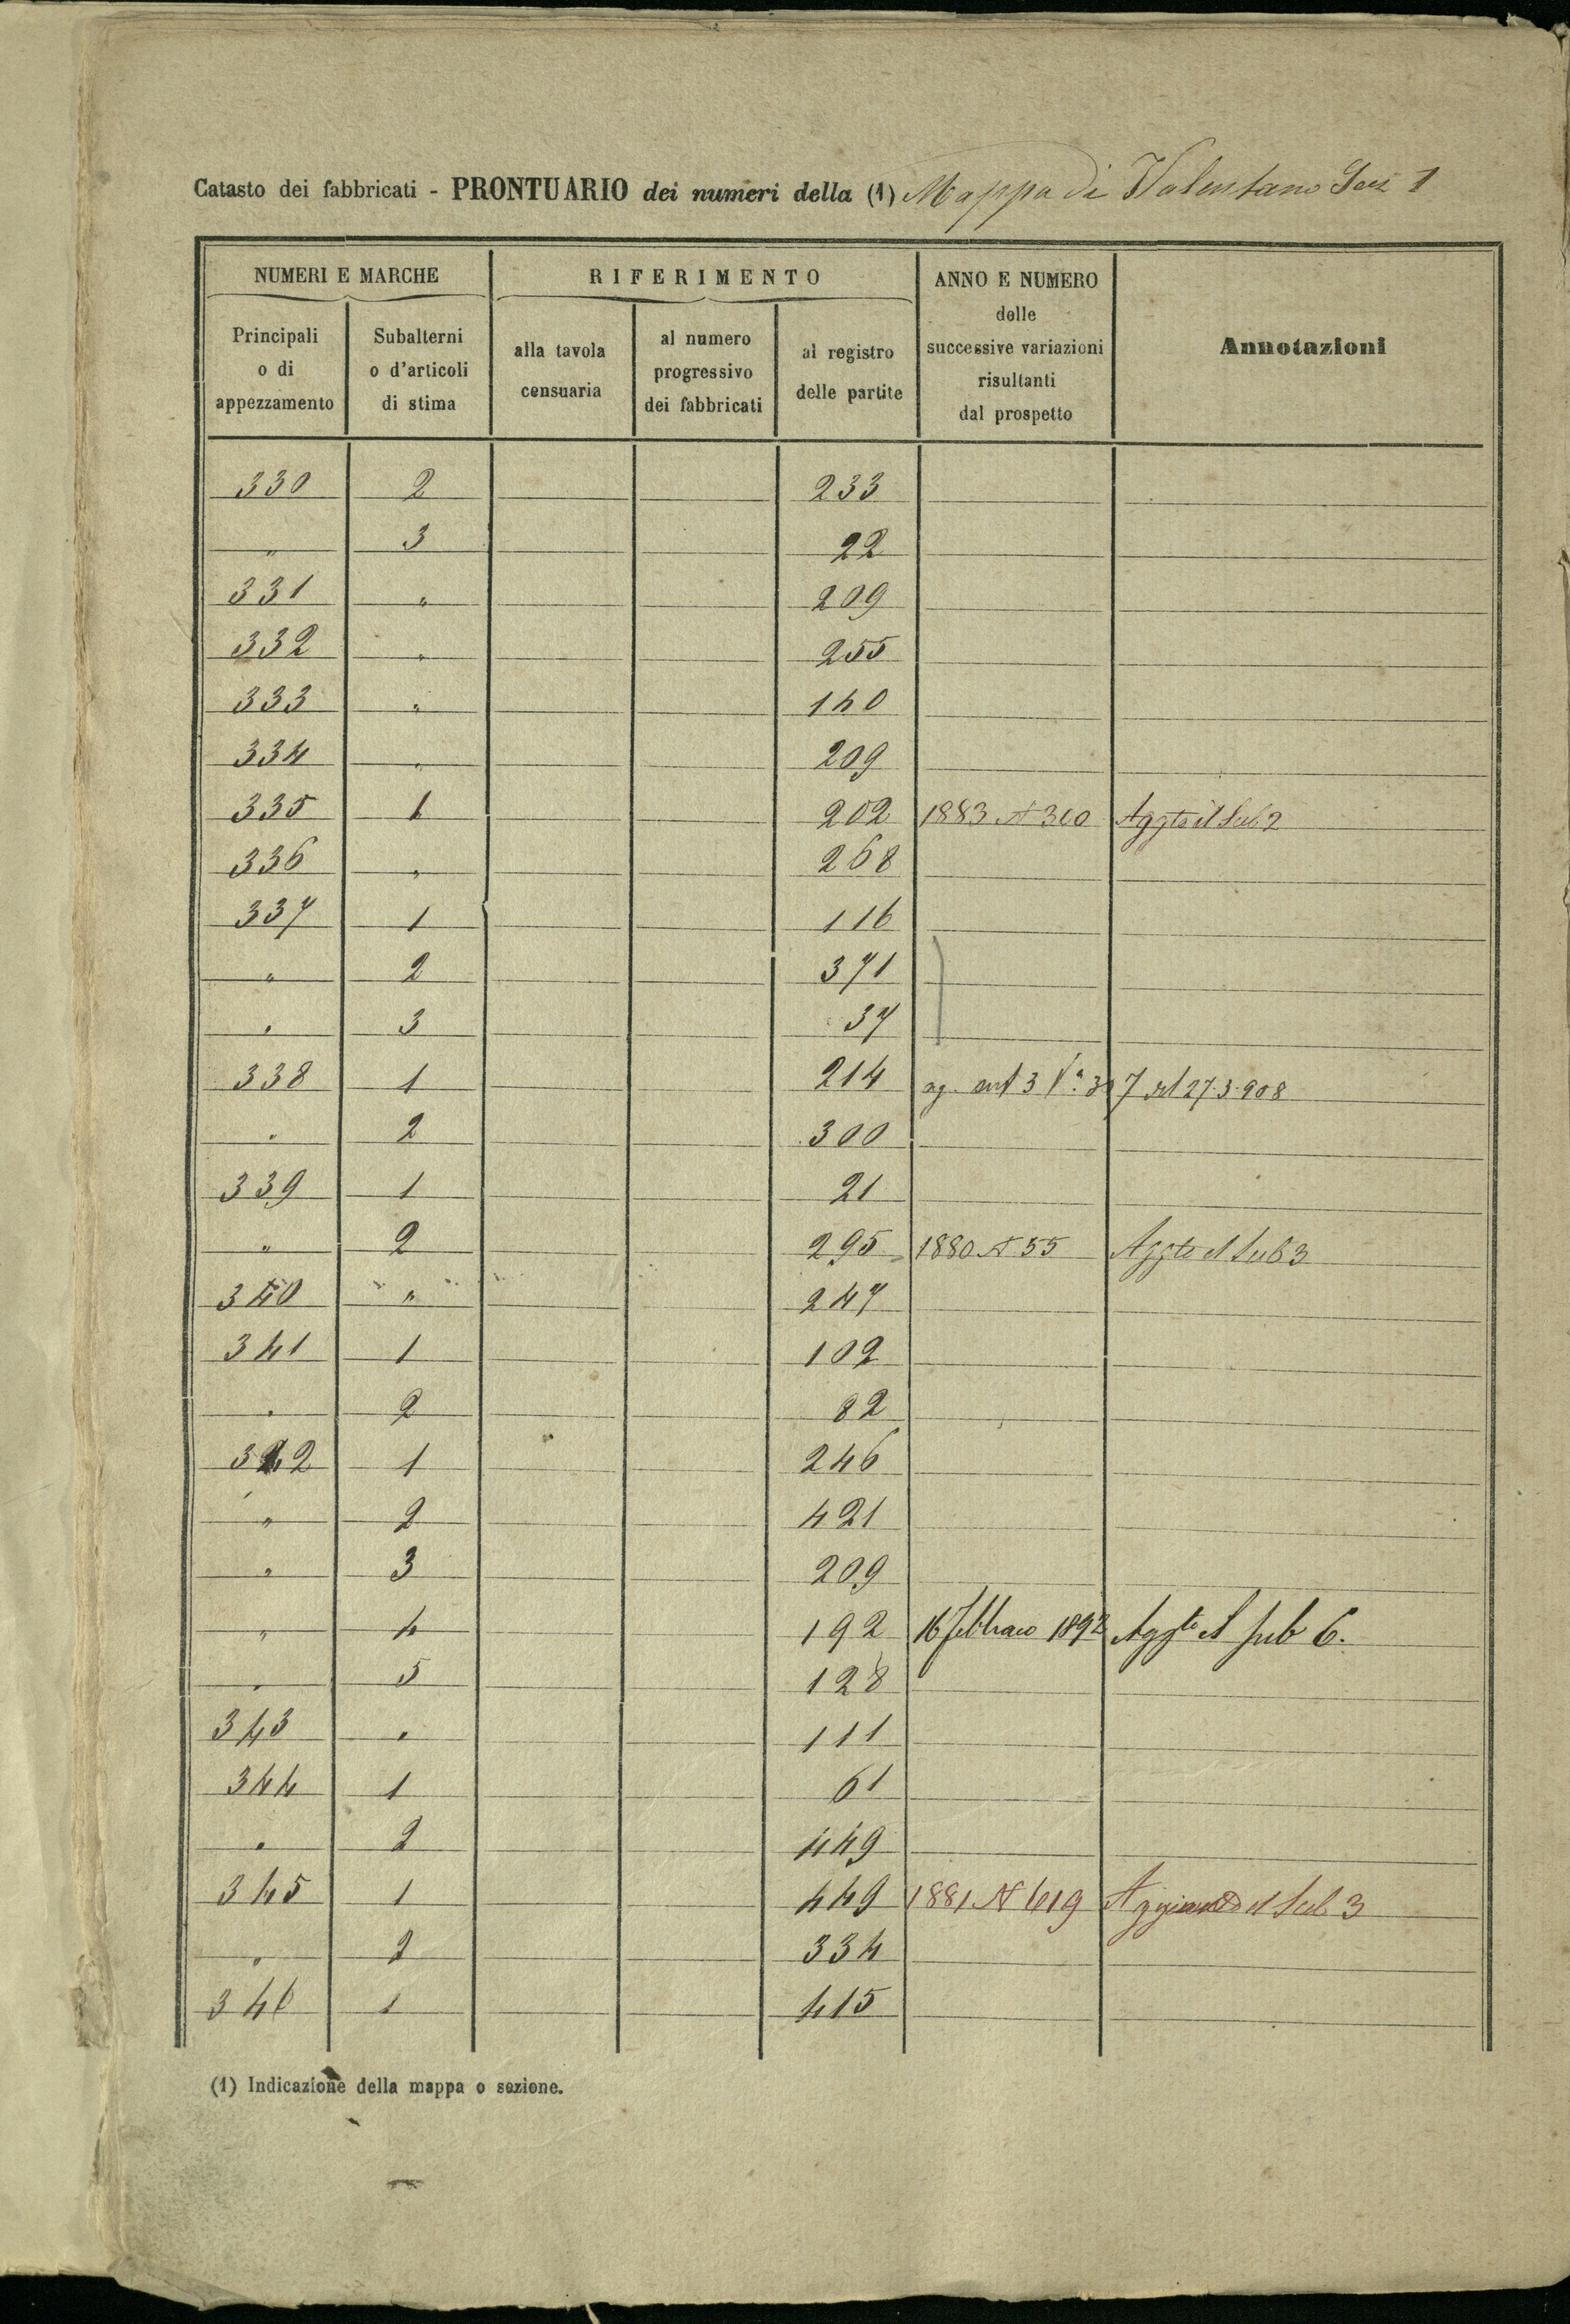 Catasto dei fabbricati - PRONTUARIO dei numeri della (1) Mappa di Valentano Sez 1
NUMERI E MARCHE RIFERIMENTO ANNO E NUMERO delle successive variazioni risultanti dal prospetto Annotazioni
Principali o di appezzamento Subalterni o d'articoli di stima alla tavola censuaria al numero progressivo dei fabbricati al registro delle partite
330 2 233
" 3 22
331 " 209
332 " 255
333 " 140
334 " 209
335 1 202 1883 N 310 Aggto il Sub 2
336 " 268
337 1 116
" 2 371
" 3 37
338 1 214 ag. 3 307 27-3-908
" 2 300
339 1 21
" 2 295 1880 N 55 Aggto il Sub 3
340 " 247
341 1 102
" 2 82
342 1 246
" 2 421
" 3 209
" 4 192 16 febbraio 1892 Aggto il sub 6.
" 5 128
343 " 111
344 1 61
" 2 449
345 1 449 1881 N 619 Aggiunto il Sub 3
" 2 334
346 1 415
(1) Indicazione della mappa o sezione.